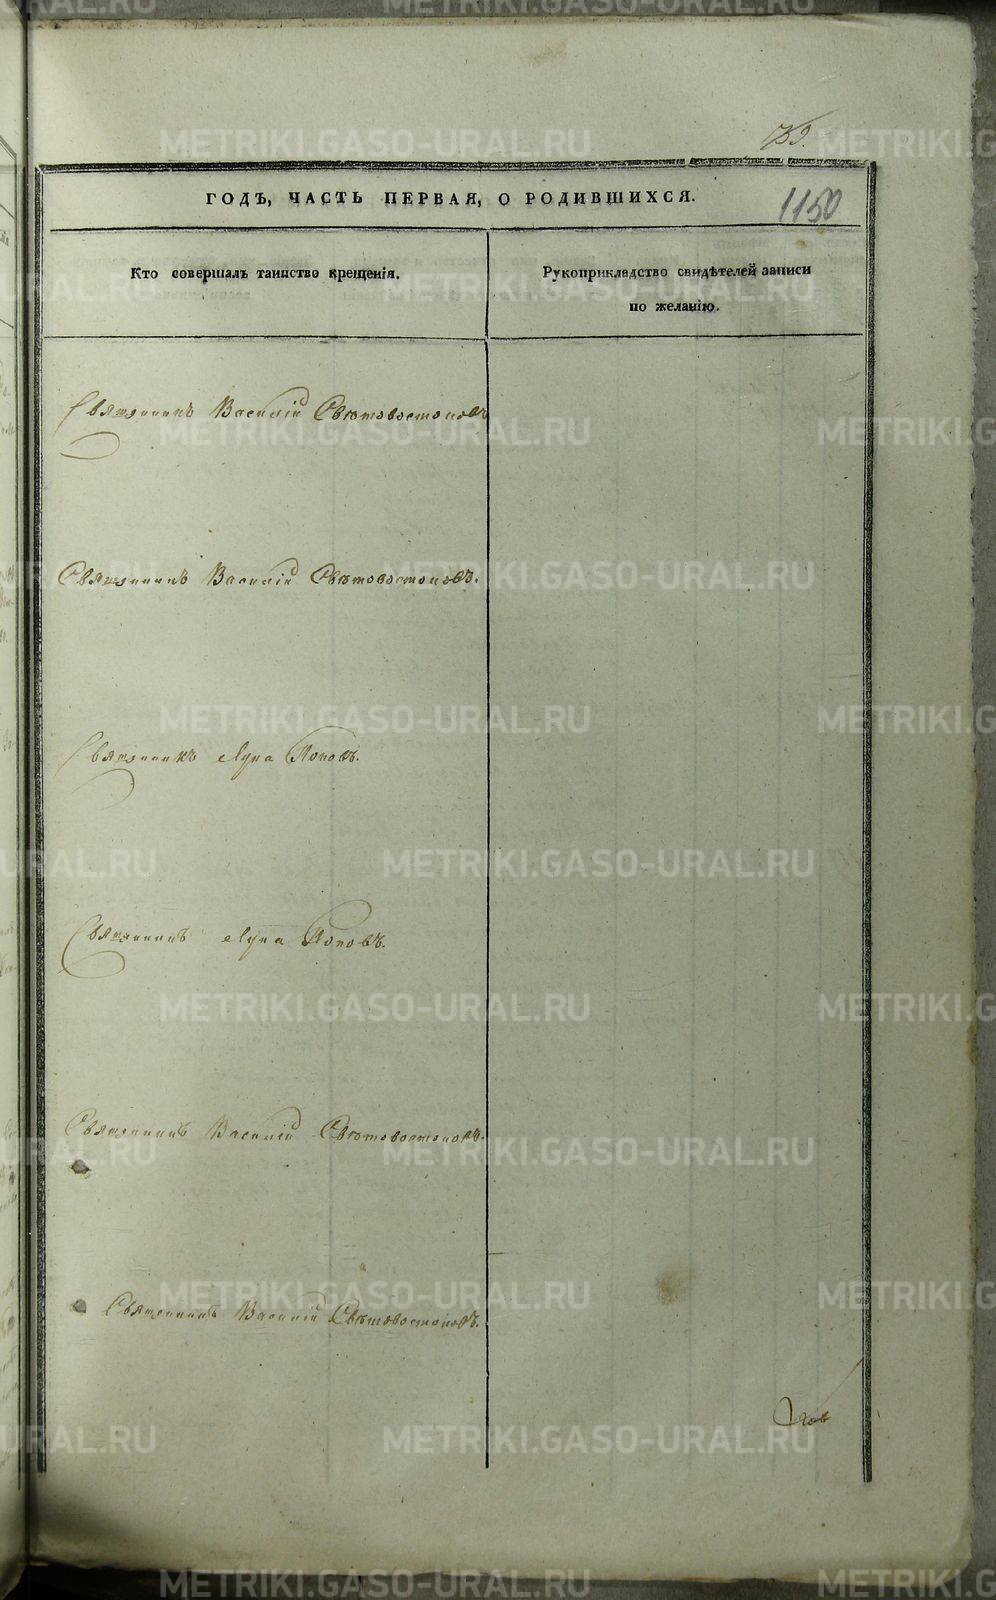 739.
ГОДЪ, ЧАСТЬ ПЕРВАЯ, О РОДИВШИХСЯ.
1150
Кто совершалъ таинство крещенія.
Рукоприкладство свидѣтелей записи
по желанію.
Священникъ Василій Свѣтовостоковъ
Священникъ Василій Свѣтовостоковъ.
Священникъ Лука Поповъ.
Священникъ Лука Поповъ.
Священникъ Василій Свѣтовостоковъ.
Священникъ Василій Свѣтовостоковъ.
METRIKI.GASO-URAL.RU